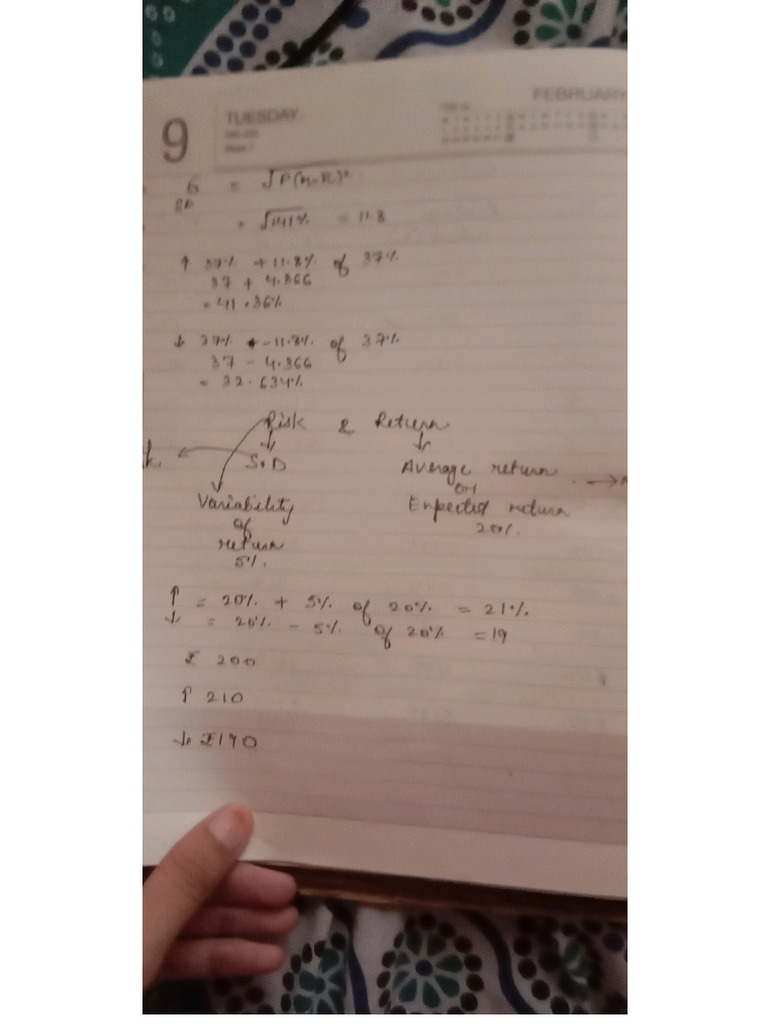 FEBRUARY
9 TUESDAY
σ = √P(x-x̄)²
SD
= √141% = 11.8
↑ 37% + 11.8% of 37%
37 + 4.366
= 41.36%
↓ 37% - 11.8% of 37%
37 - 4.366
= 32.634%
Risk & Return
↓ ↓
S.D Average return
or
Variability Expected return
of 20%.
return
5%.
↑ = 20% + 5% of 20% = 21%.
↓ = 20% - 5% of 20% = 19
₹ 200
↑ 210
↓ ₹190